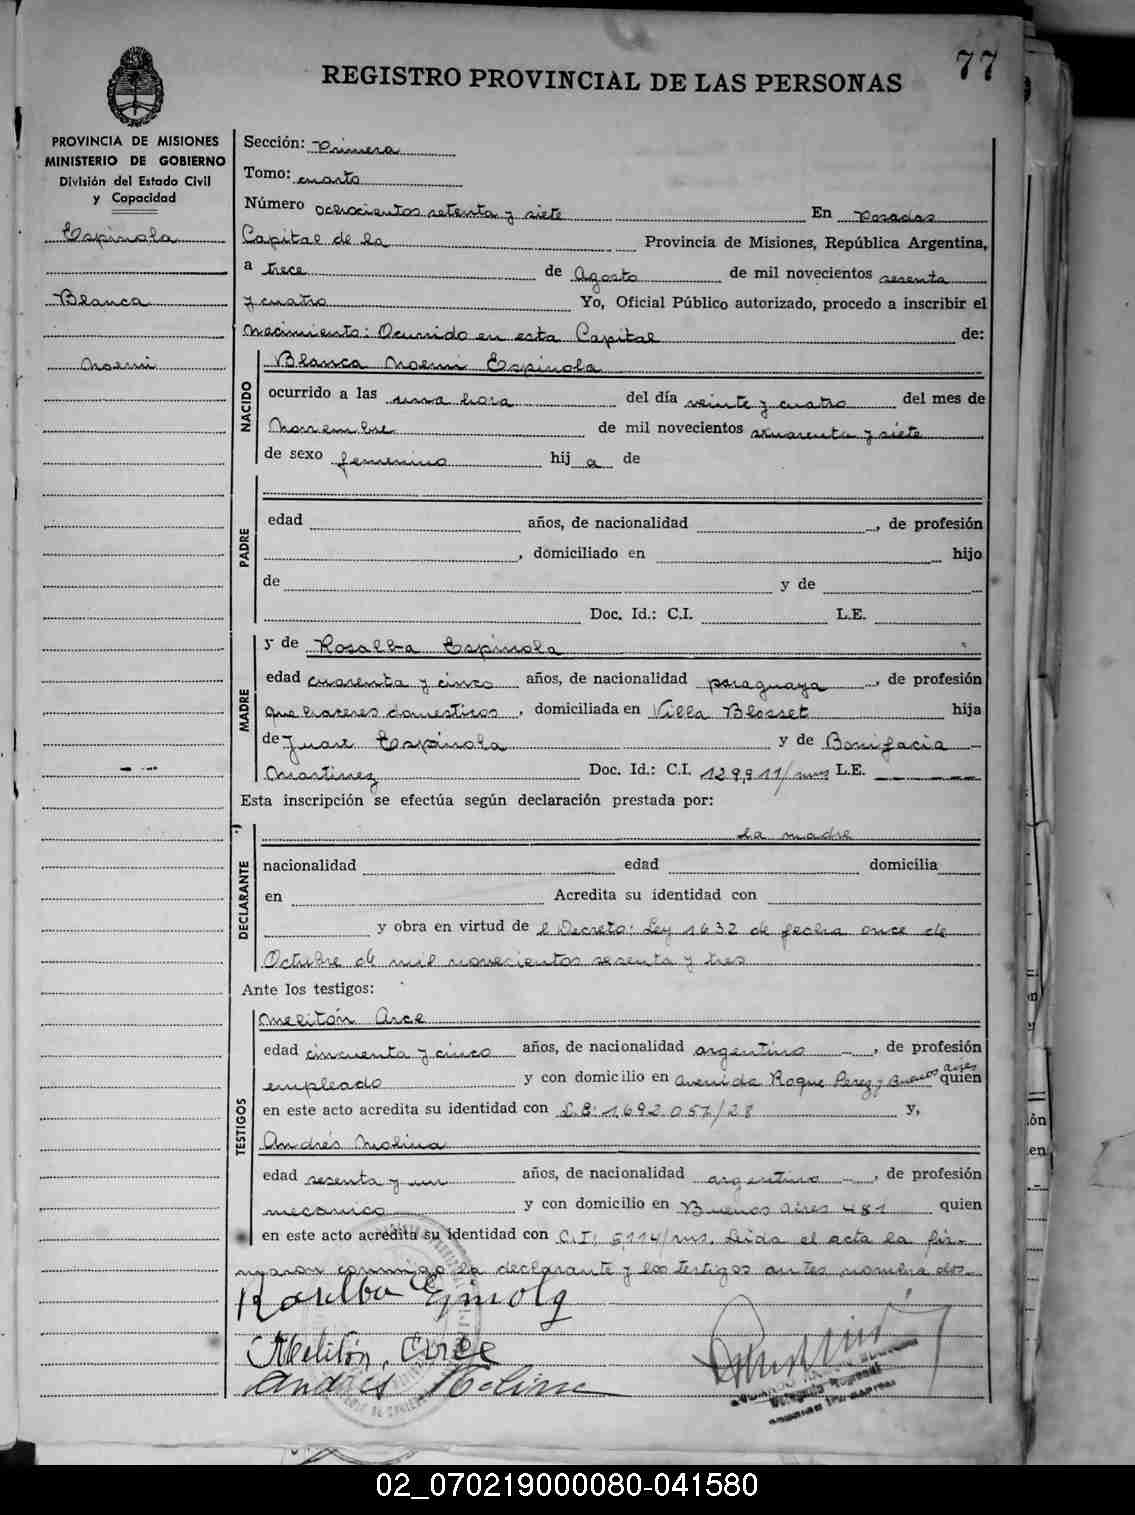 77
REGISTRO PROVINCIAL DE LAS PERSONAS
PROVINCIA DE MISIONES
MINISTERIO DE GOBIERNO
División del Estado Civil
y Capacidad
Espinola
Blanca
Noemi
Sección: Primera
Tomo: cuarto
Número ochocientos setenta y siete En Posadas
Capital de la Provincia de Misiones, República Argentina,
a trece de Agosto de mil novecientos sesenta
y cuatro Yo, Oficial Público autorizado, procedo a inscribir el
Nacimiento: Ocurrido en esta Capital de:
NACIDO
Blanca Noemi Espinola
ocurrido a las una hora del día veinte y cuatro del mes de
Noviembre de mil novecientos cuarenta y siete
de sexo femenino hij a de
PADRE
edad años, de nacionalidad , de profesión
, domiciliado en hijo
de y de
Doc. Id.: C.I. L.E.
MADRE
y de Rosalba Espinola
edad cuarenta y cinco años, de nacionalidad paraguaya , de profesión
quehaceres domesticos , domiciliada en Villa Blosset hija
de Juan Espinola y de Bonifacia
Martinez Doc. Id.: C.I. 129,911/mns L.E.
Esta inscripción se efectúa según declaración prestada por:
DECLARANTE
la madre
nacionalidad edad domicilia
en Acredita su identidad con
y obra en virtud de l Decreto: Ley 1632 de fecha once de
Octubre de mil novecientos sesenta y tres
Ante los testigos:
TESTIGOS
Melitón Arce
edad cincuenta y cinco años, de nacionalidad argentino , de profesión
empleado y con domicilio en avenida Roque Perez y Buenos aires quien
en este acto acredita su identidad con L.E: 1.692.057/28 y,
Andrés Molina
edad sesenta y un años, de nacionalidad argentino , de profesión
mecanico y con domicilio en Buenos Aires 481 quien
en este acto acredita su identidad con C.I: 5,114/mns. Leida el acta la fir-
maron conmigo la declarante y los testigos antes nombrados.
Rosalba Espinola
Melitón Arce
Andrés Molina
Delegado Regional
02_070219000080-041580